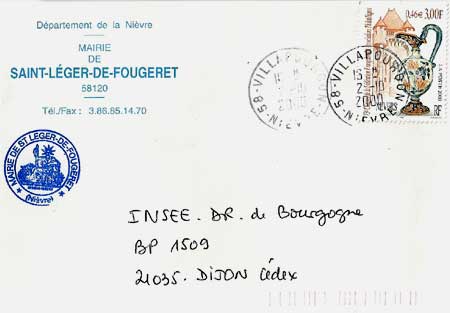 Département de la Nièvre
MAIRIE
DE
SAINT-LÉGER-DE-FOUGERET
58120
Tél./Fax : 3.86.85.14.70
MAIRIE DE ST LEGER-DE-FOUGERET
(Nièvre)
0,46€ 3,00F
58-VILLAPOURÇON
NIEVRE
58-VILLAPOURÇON
2-10
NIEVRE
INSEE. DR. de Bourgogne
BP 1509
21035. DIJON Cédex